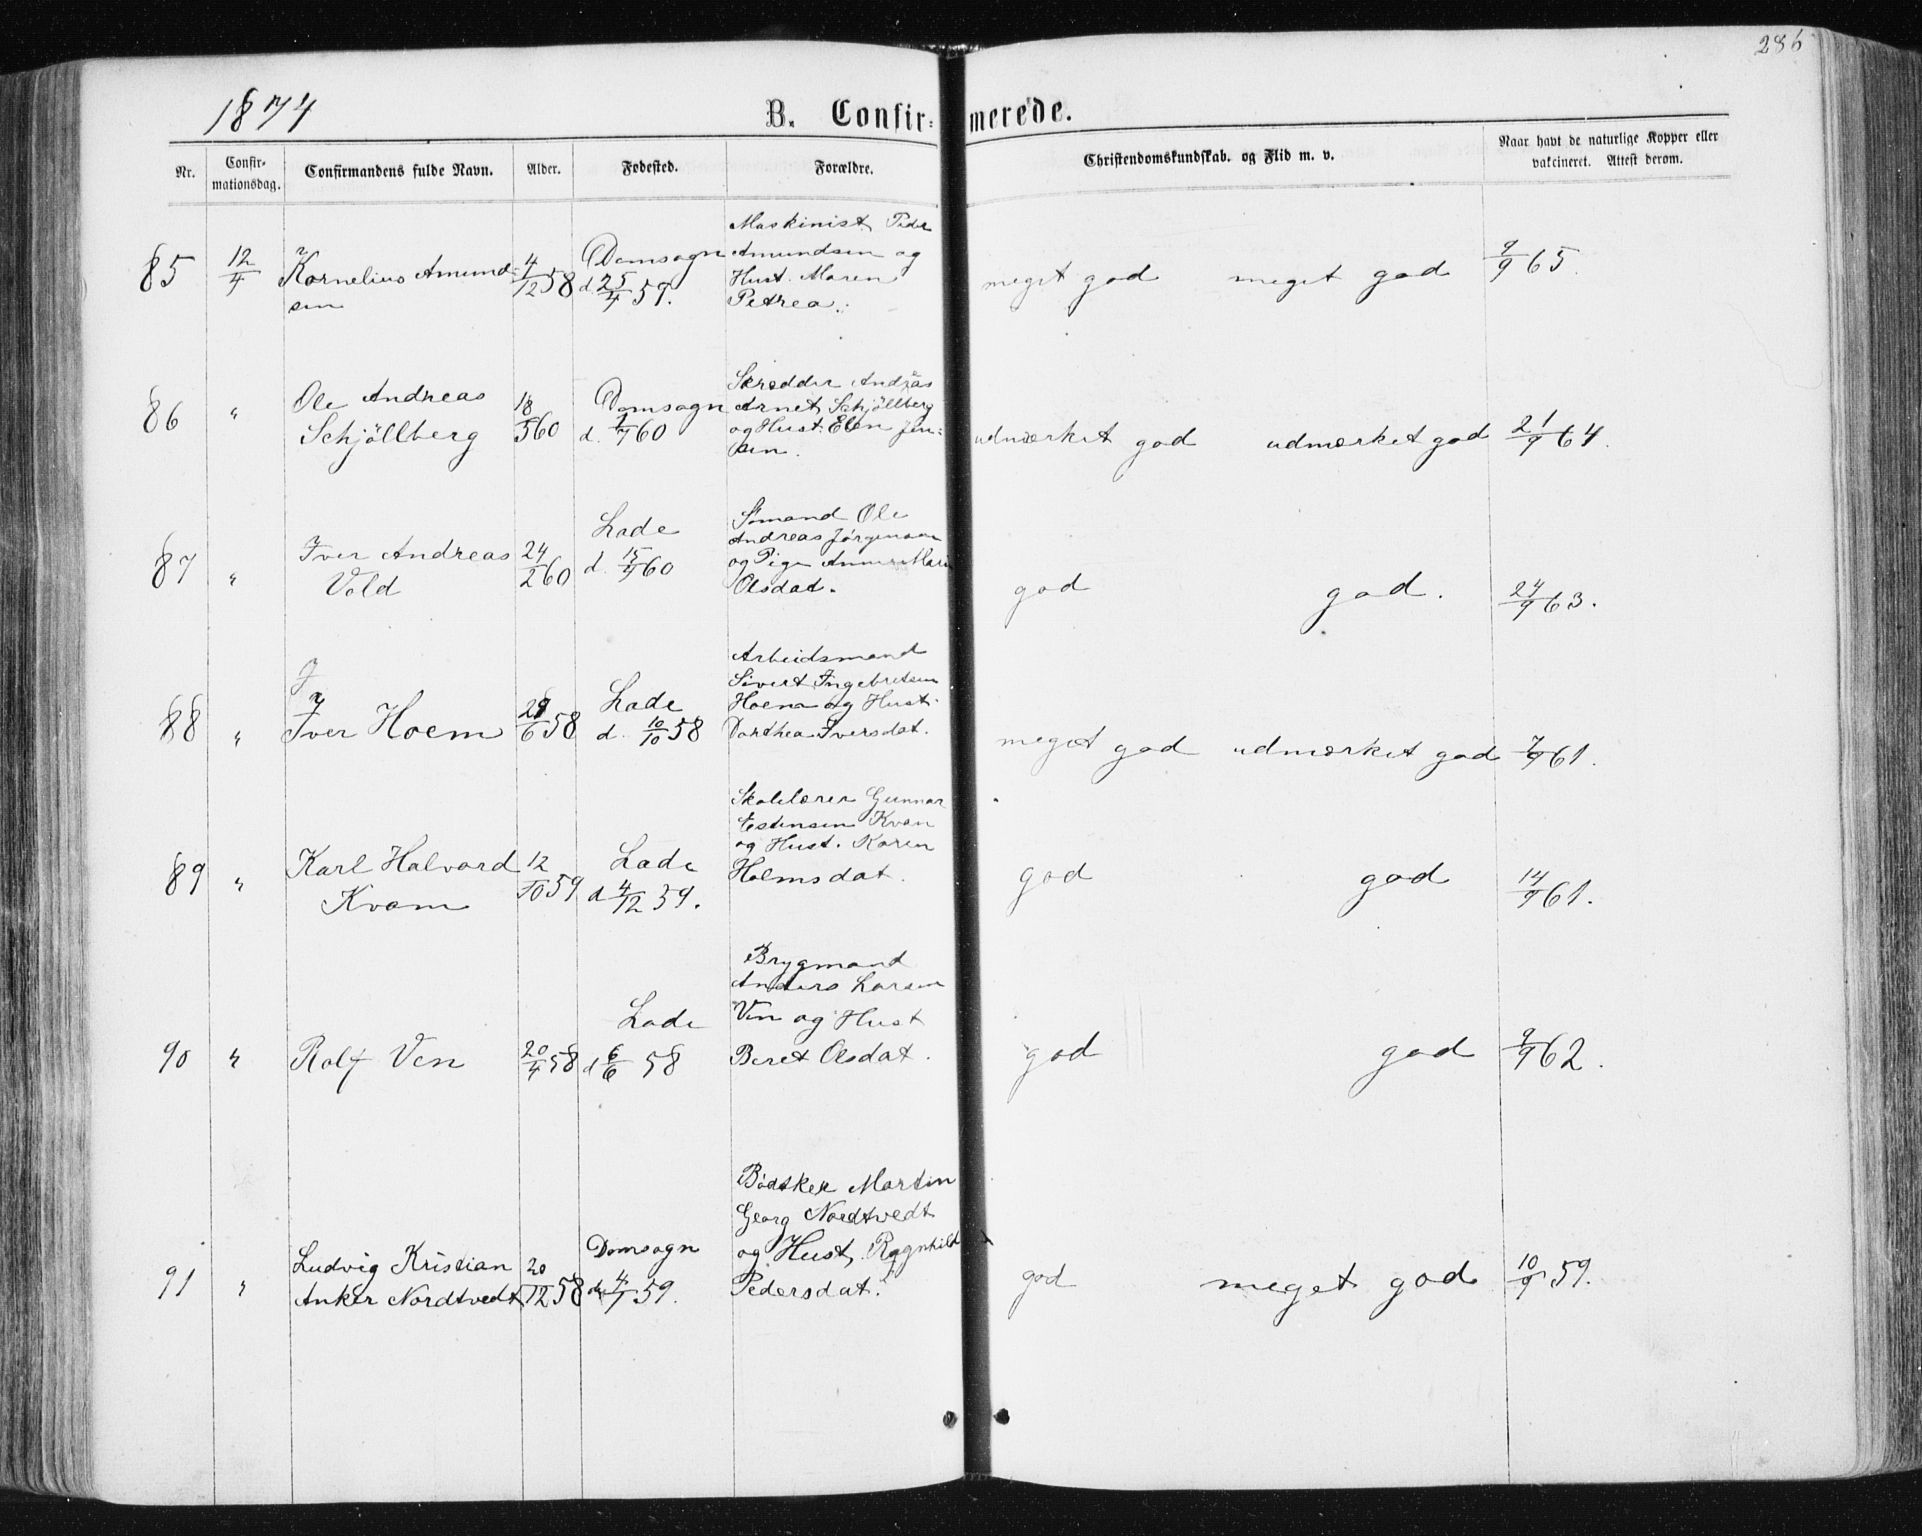 286
1874
B. Confirmerede.
Nr. Confirmationsdag. Confirmandens fulde Navn. Alder. Fødested. Forældre. Christendomskundskab. og Flid m. v. Naar havt de naturlige Kopper eller vakcineret. Attest derom.
85 12/4 Kornelius Amundsen 4/12 58 Domsogn d. 25/4 59. Maskinist Peder Amundsen og Hust. Maren Petrea. meget god meget god 9/9 65.
86 " Ole Andreas Schjöllberg 18/5 60 Domsogn d. 1/7 60 Skredder Andreas Arnet Schjöllberg og Hust. Elen Jensen. udmærket god udmærket god 21/9 64.
87 " Iver Andreas Vold 24/2 60 Lade d. 15/4 60 Sömand Ole Andreas Jørgensen og Pige Anne Marie Olsdat. god god. 24/9 63.
88 " Iver Hoem 28/6 58 Lade d. 10/10 58 Arbeidsmand Sivert Ingebretsen Hoem og Hust. Dorthea Iversdat. meget god udmærket god 7/9 61.
89 " Karl Halvard Kvam 12/10 59 Lade d 4/12 59. Skolelærer Gunnar Estensen Kvam og Hust. Karen Holmsdat. god god 14/9 61.
90 " Rolf Ven 20/4 58 Lade d 6/6 58 Brygmand Anders Larsen Ven og Hust Beret Olsdat. god god 9/9 62.
91 " Ludvig Kristian Anker Nordtvedt 20/12 58 Domsogn d. 4/7 59. Bödsker Martin Georg Nordtvedt og Hust. Ragnhild Pedersdat. god meget god 10/9 59.